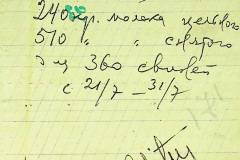 240 гр. молока цельного
510 " " снятого
на 360 свиней
с 21/7 – 31/7
171